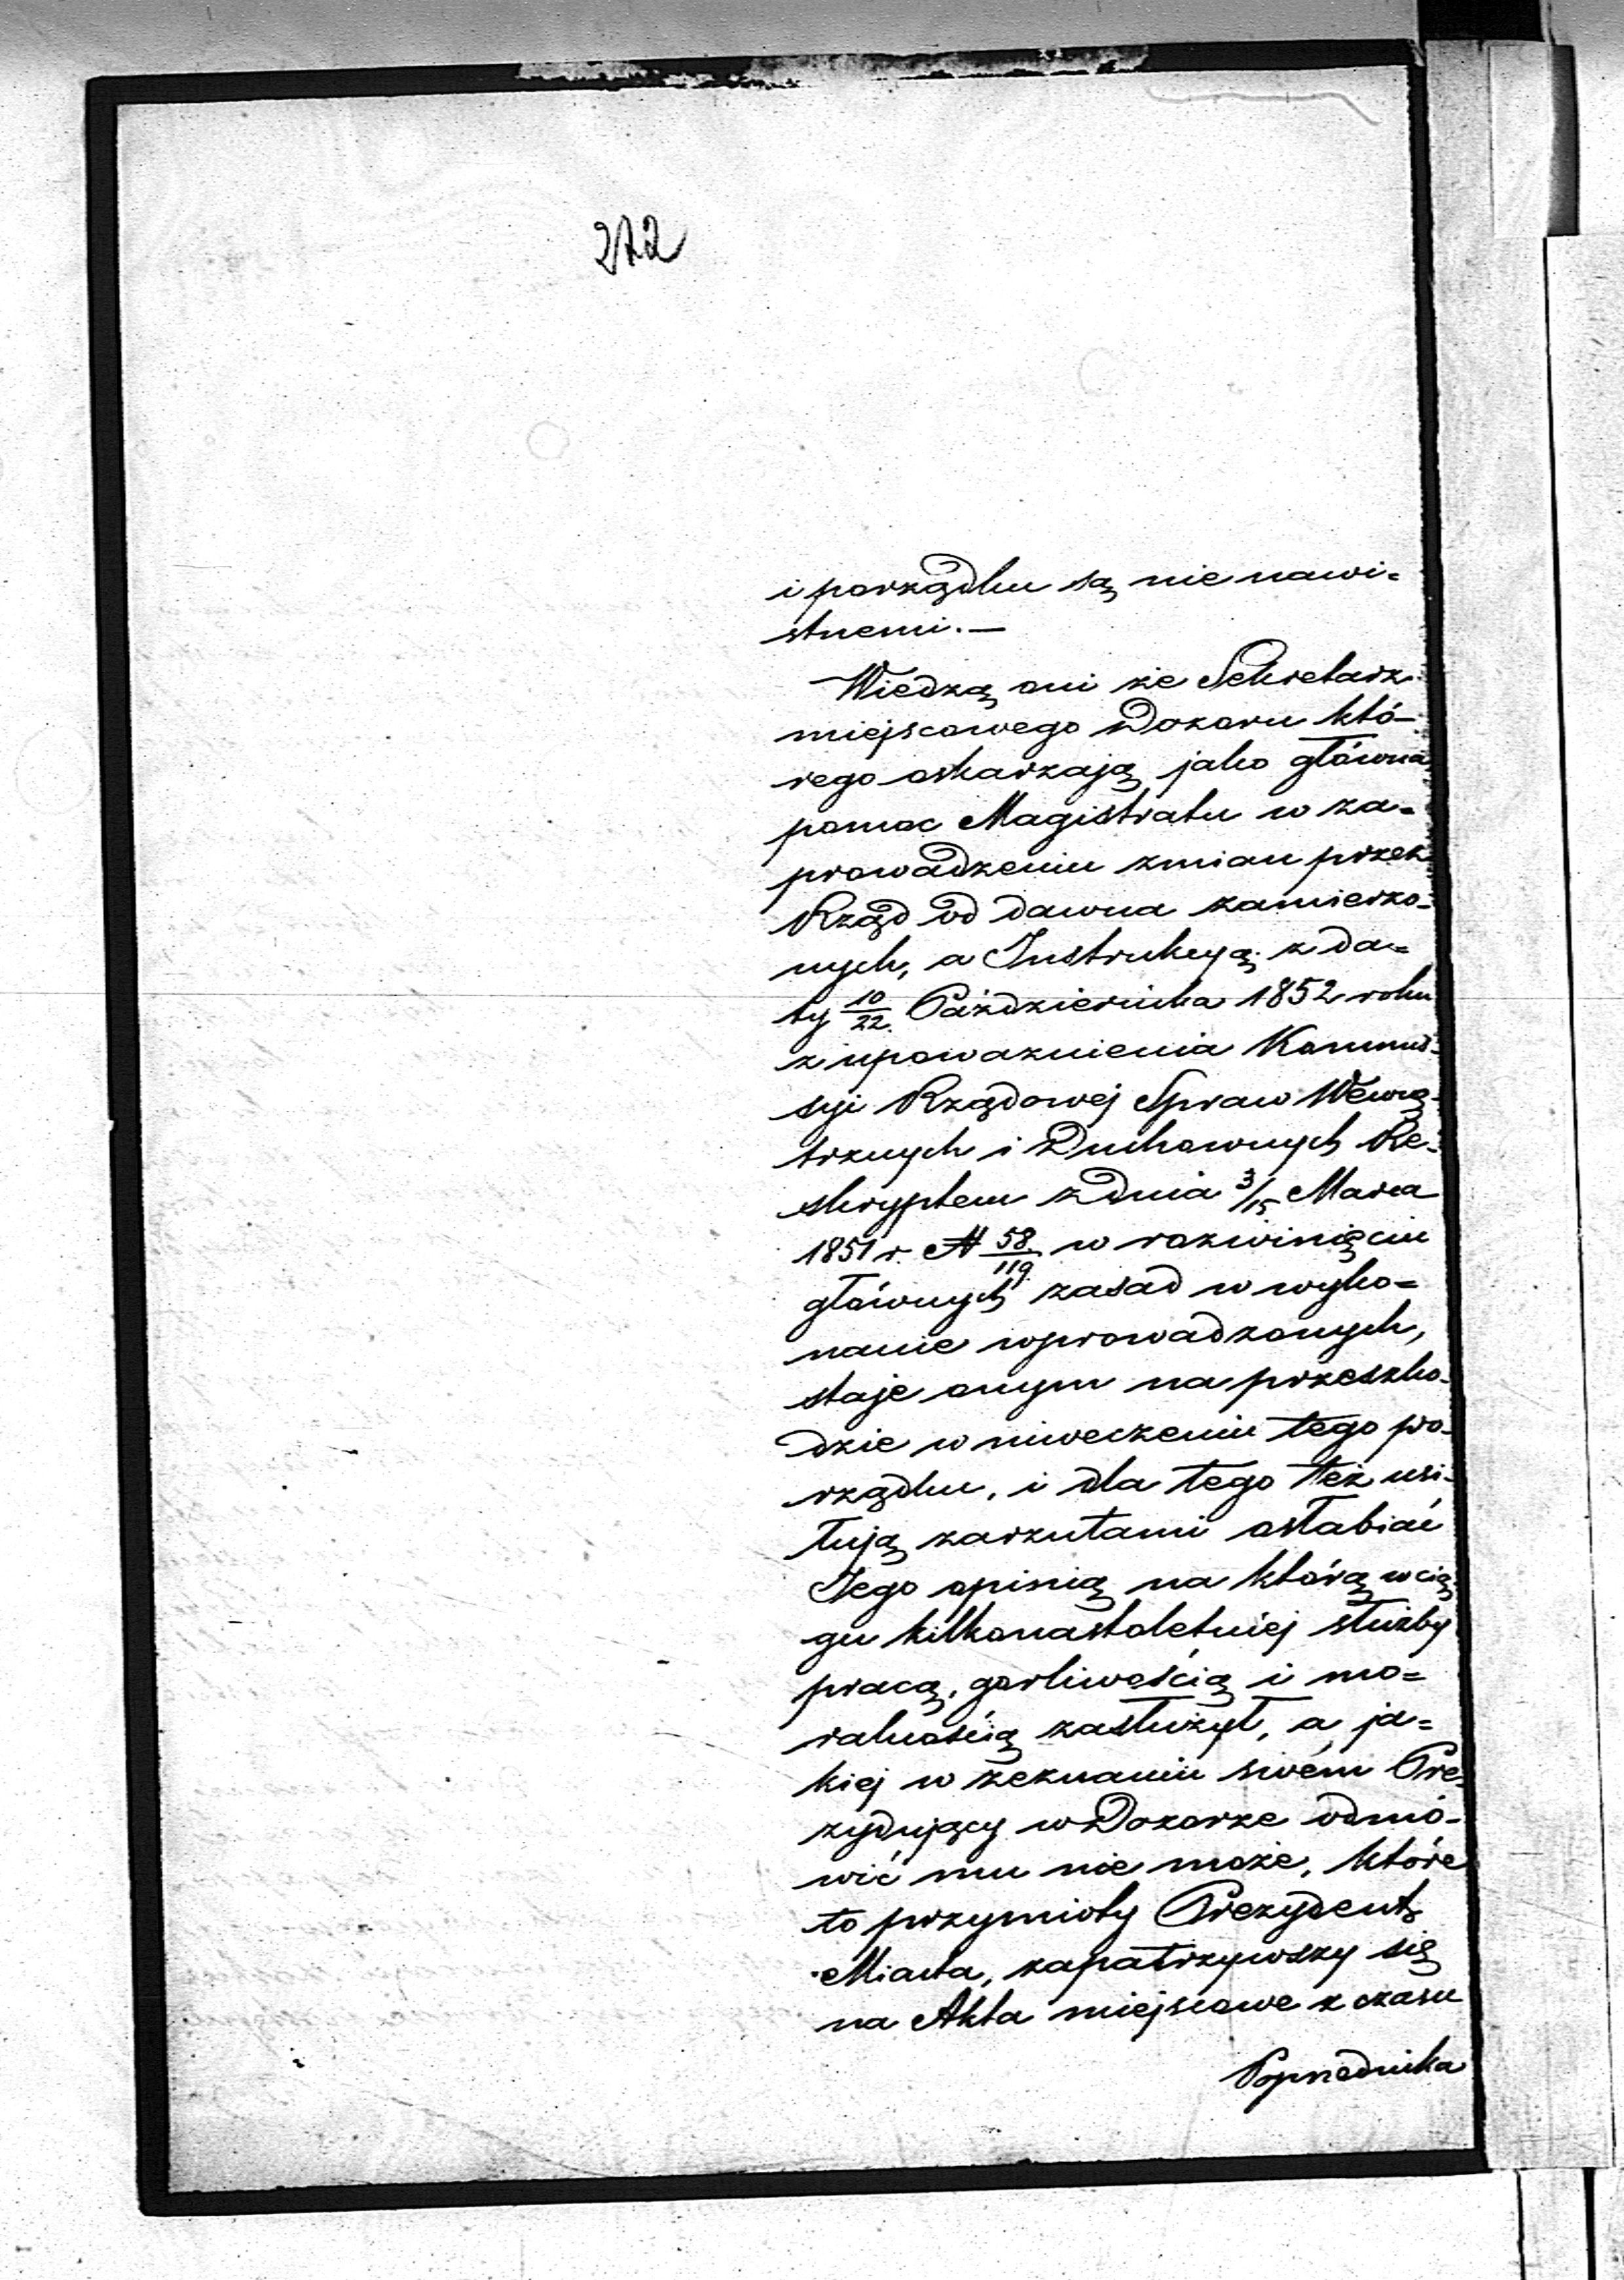 272
i porządku są nie nawi=
stnemi.—
Wiedzą oni że Sekretarz
miejscowego Dozoru któ-
rego oskarzają jako główna
pomoc Magistratu w za=
prowadzeniu zmian przez
Rząd od dawna zamierzo-
nych, a Instrukcyą z da=
ty 10/22 Października 1852 roku
z upoważnienia Kommis-
syi Rządowej Spraw Wewnę-
trznych i Duchownych Re-
skryptem z dnia 3/15 Marca
1851 r. N 58/119 w rozwinięciu
głównych zasad w wyko=
nanie wprowadzonych,
staje onym na przeszko-
dzie w niweczeniu tego po-
rządku, i dla tego też usi-
łują zarzutami osłabiać
Jego opinią na którą w cią-
gu kilkonastoletniej służby
pracą, gorliwością i mo=
ralnością zasłużył, a ja=
kiej w zeznaniu swém Pre-
zydujący w Dozorze odmó-
wić mu nie może, które
to przymioty Prezydent
Miasta, zapatrzywszy się
na Akta miejscowe z czasu
Poprzednika